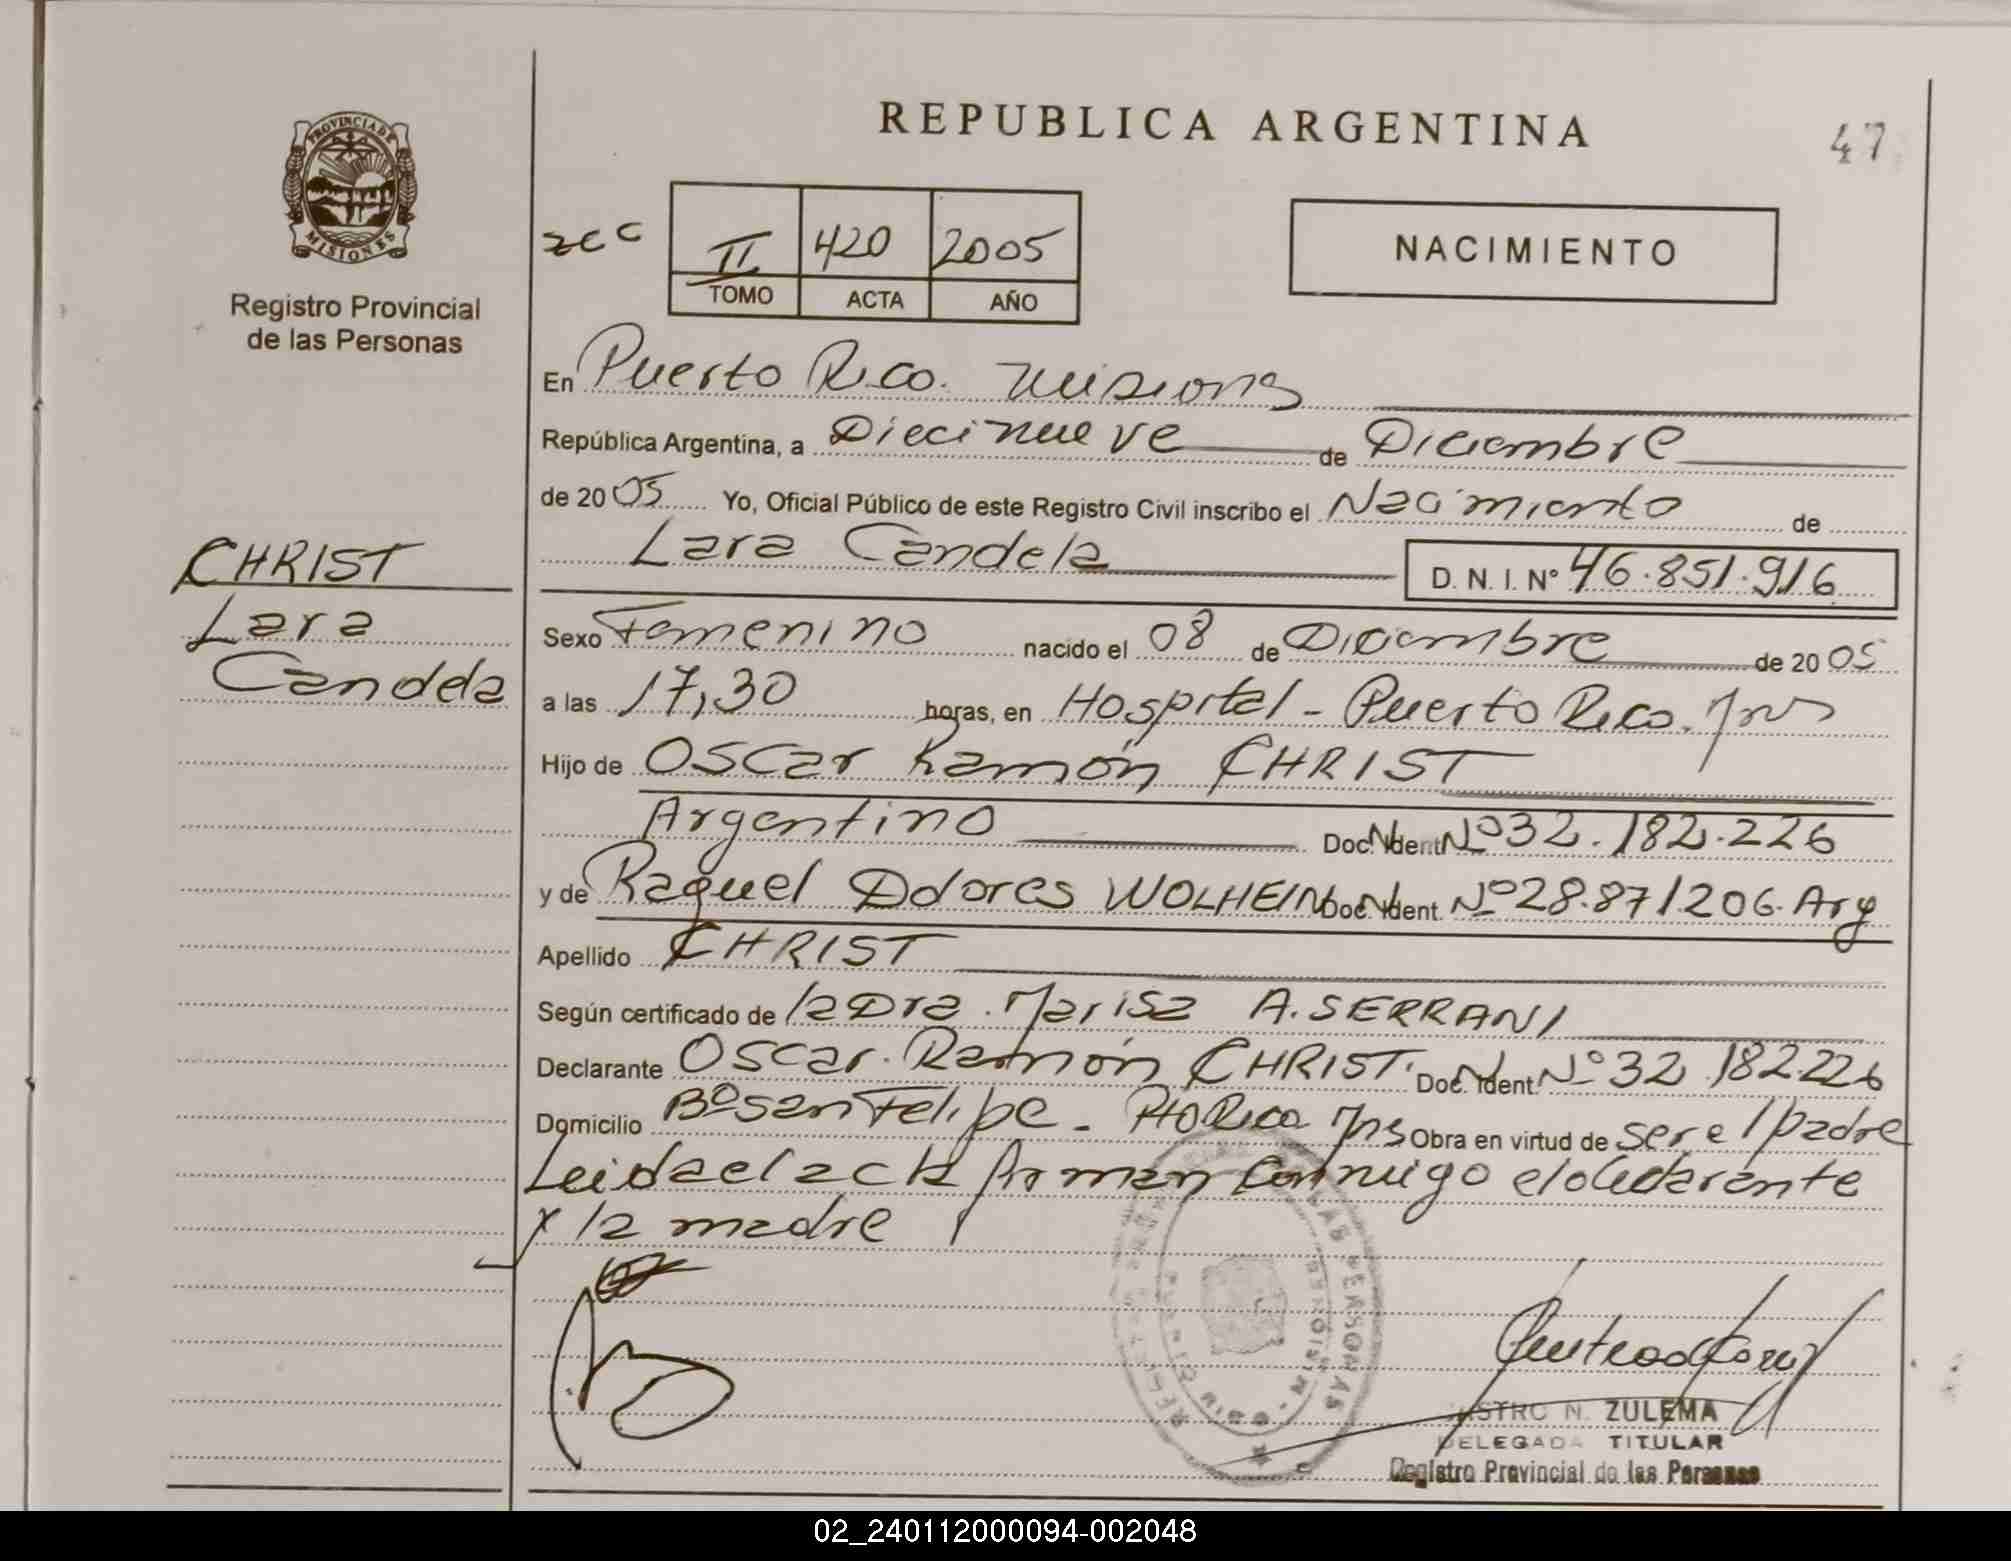 REPUBLICA ARGENTINA
47
PROVINCIA DE
MISIONES
Registro Provincial
de las Personas
zcc
II 420 2005
TOMO ACTA AÑO
NACIMIENTO
En Puerto Rico. Misiones
República Argentina, a Diecinueve de Diciembre
de 2005 Yo, Oficial Público de este Registro Civil inscribo el Nacimiento de
Lara Candela D. N. I. N° 46.851.916
CHRIST
Lara
Candela
Sexo Femenino nacido el 08 de Diciembre de 2005
a las 17,30 horas, en Hospital - Puerto Rico. Mns
Hijo de Oscar Ramón CHRIST
Argentino Doc. Ident. Nº 32.182.226
y de Raquel Dolores WOLHEIN Doc. Ident. Nº 28.871206. Arg
Apellido CHRIST
Según certificado de la Dra. Marisa A. SERRANI
Declarante Oscar Ramón CHRIST. Doc. Ident. Nº 32.182.226
Domicilio Bº San Felipe - Pto Rico Mns Obra en virtud de ser el padre
Leida el acta firman conmigo el declarante
y la madre
REGISTRO DE LAS PERSONAS
MISIONES
N. ZULEMA
DELEGADA TITULAR
Registro Provincial de las Personas
02_240112000094-002048